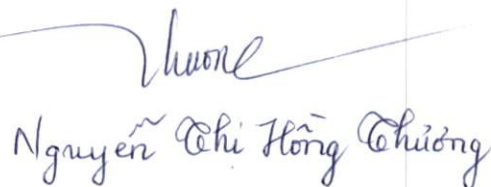 Thương
Nguyễn Thị Hồng Thương